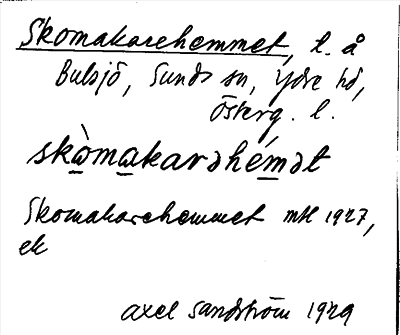 Skomakarehemmet, t. å
Bulsjö, Sunds sn, Ydre hd,
Österg. l.
skòmakarəhémət
Skomakarehemmet mtl 1927,
ek
Axel Sandström 1929